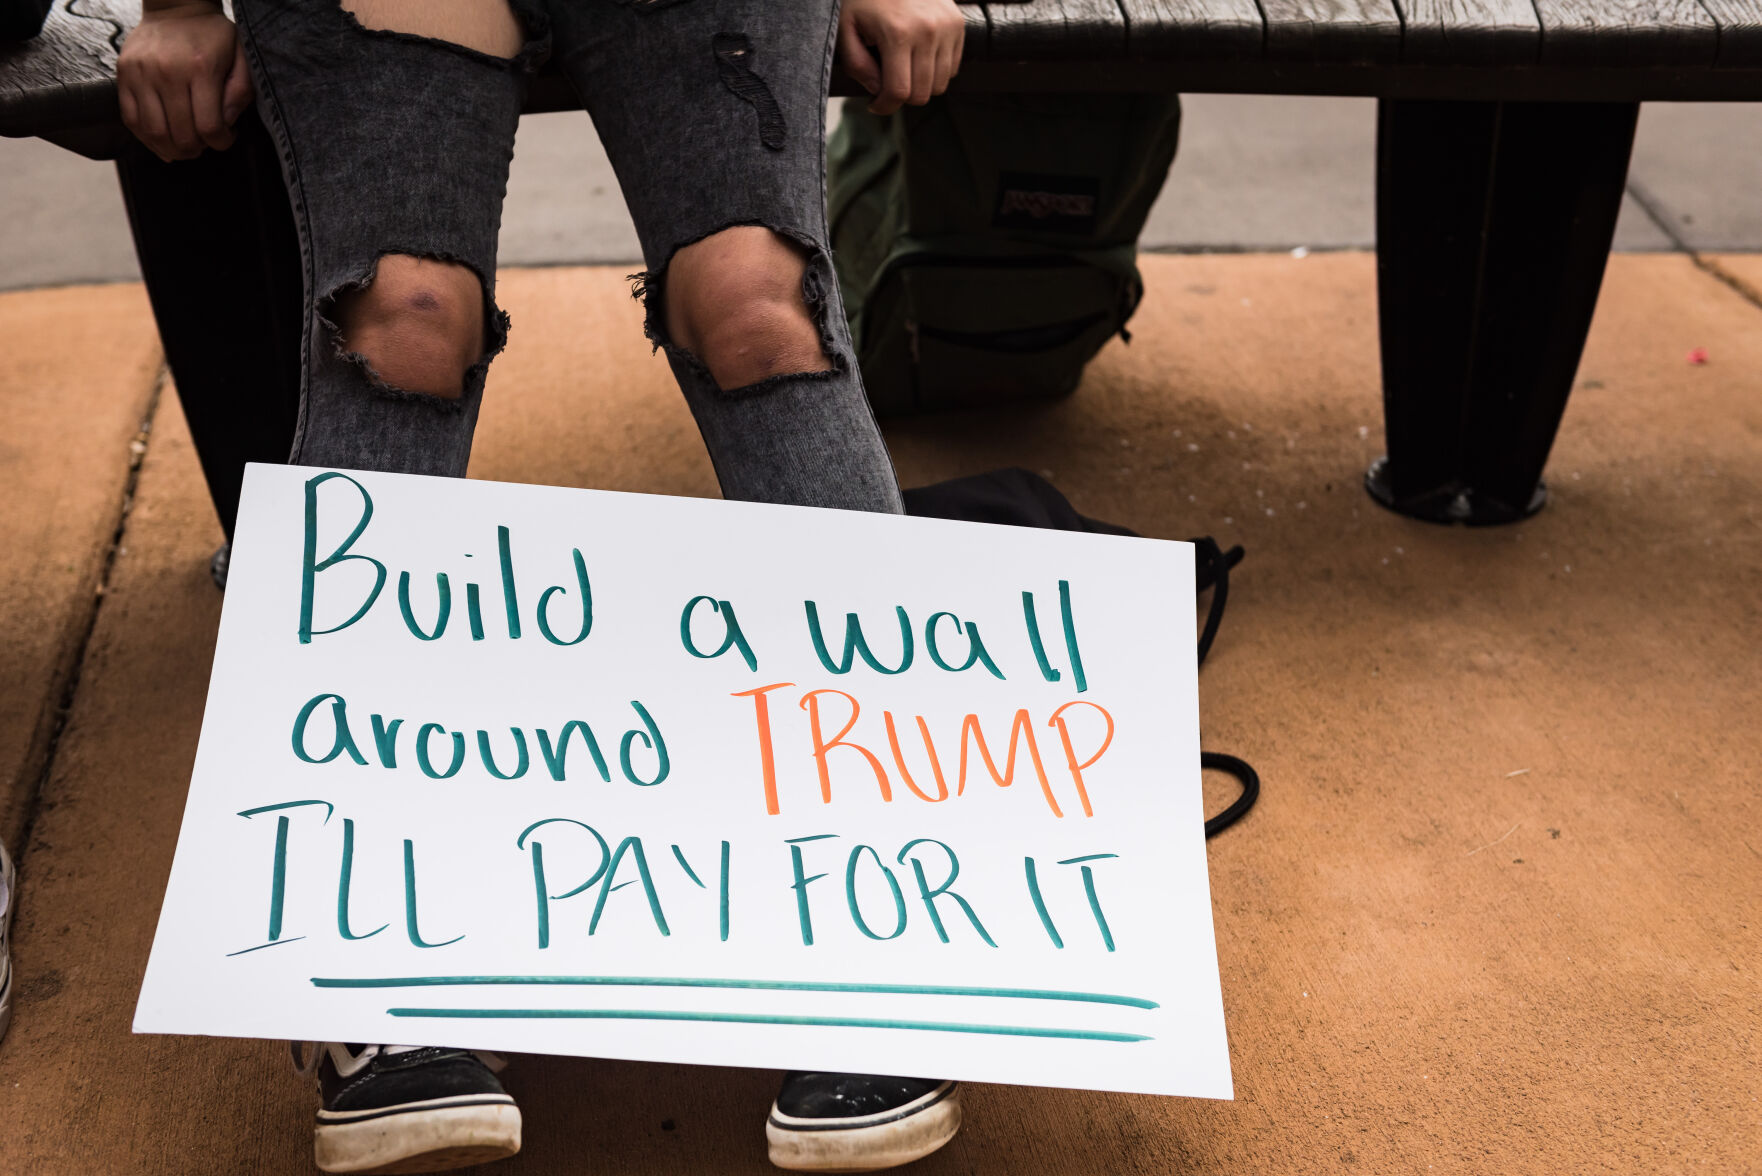 JANSPORT
Build a wall
around TRUMP
I'LL PAY FOR IT